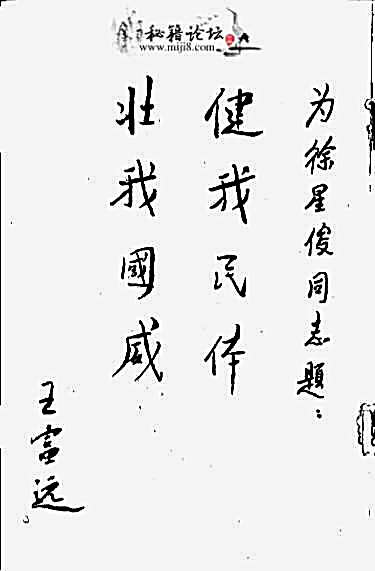 秘籍论坛
www.miji8.com
为徐星俊同志题：
健我民体
壮我國威
王富远